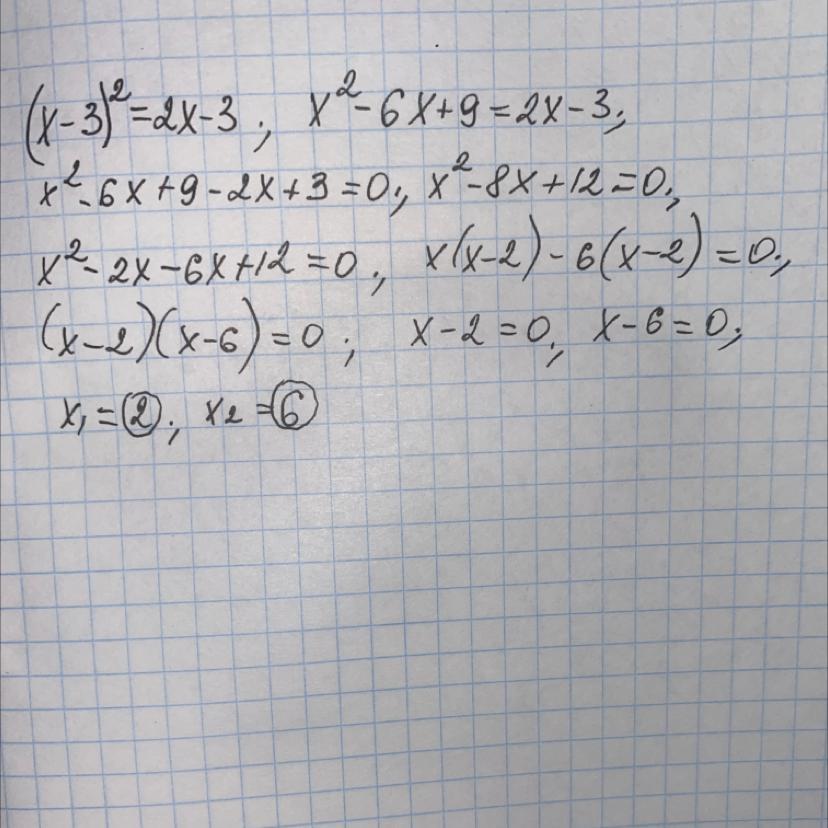 (x-3)²=2x-3; x²-6x+9=2x-3;
x²-6x+9-2x+3=0; x²-8x+12=0;
x²-2x-6x+12=0; x(x-2)-6(x-2)=0;
(x-2)(x-6)=0; x-2=0; x-6=0;
x₁=2; x₂=6